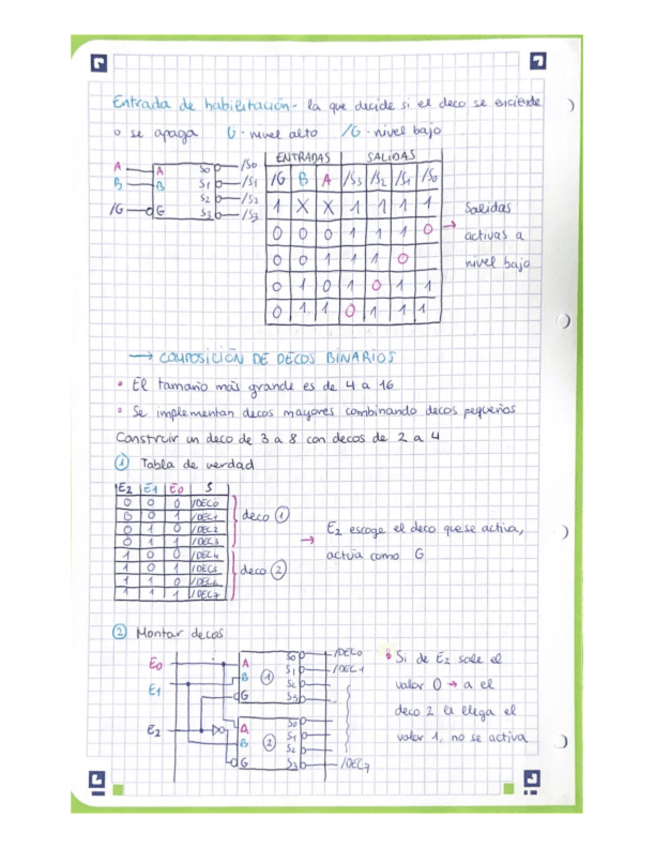 Entrada de habilitación - la que decide si el deco se enciende
o se apaga G - nivel alto /G - nivel bajo
A A S0 /S0
B B S1 /S1
S2 /S2
/G G S3 /S3
ENTRADAS SALIDAS
/G B A /S3 /S2 /S1 /S0
1 X X 1 1 1 1
0 0 0 1 1 1 0
0 0 1 1 1 0
0 1 0 1 0 1 1
0 1 1 0 1 1 1
→ Salidas
activas a
nivel bajo
→ COMPOSICIÓN DE DECOS BINARIOS
• El tamaño más grande es de 4 a 16
• Se implementan decos mayores combinando decos pequeños
Construir un deco de 3 a 8 con decos de 2 a 4
① Tabla de verdad
E2 E1 E0 S
0 0 0 /DEC0
0 0 1 /DEC1
0 1 0 /DEC2
0 1 1 /DEC3
1 0 0 /DEC4
1 0 1 /DEC5
1 1 0 /DEC6
1 1 1 /DEC7
deco ①
deco ②
→ E2 escoge el deco que se activa,
actúa como G
② Montar decos
E0 A S0 /DEC0
E1 B ① S1 /DEC1
S2
G S3
E2 A S0
B ② S1
S2
G S3 /DEC7
• Si de E2 sale el
valor 0 → a el
deco 2 le llega el
valor 1, no se activa